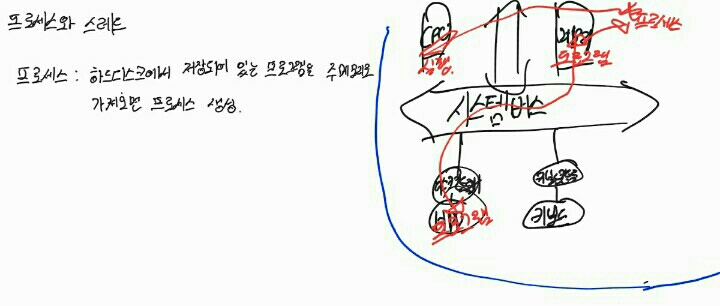 프로세스와 스레드
프로세스 : 하드디스크에서 저장되어 있는 프로그램을 주메모리로
가져오면 프로세스 생성.
CPU
실행.
메모리
프로그램
프로세스
시스템버스
프로그램